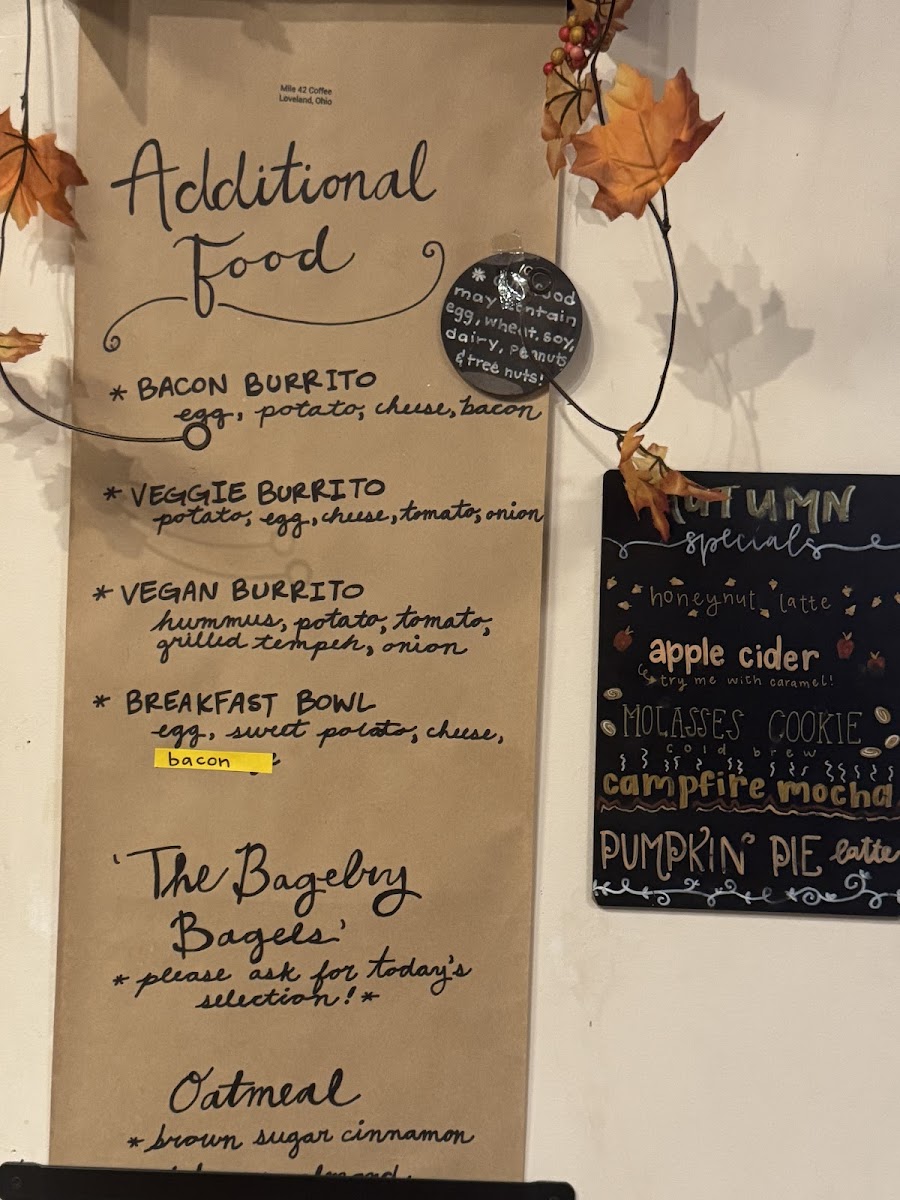 Mile 42 Coffee
Loveland, Ohio
Additional
Food
* BACON BURRITO
egg, potato, cheese, bacon
* VEGGIE BURRITO
potato, egg, cheese, tomato, onion
* VEGAN BURRITO
hummus, potato, tomato,
grilled tempeh, onion
* BREAKFAST BOWL
egg, sweet potato, cheese,
bacon
'The Bagelry
Bagels'
* please ask for today's
selection! *
Oatmeal
* brown sugar cinnamon
*
may contain
egg, wheat, soy,
dairy, peanuts
& tree nuts!
AUTUMN
specials
honeynut latte
apple cider
try me with caramel!
MOLASSES COOKIE
cold brew
campfire mocha
PUMPKIN PIE latte